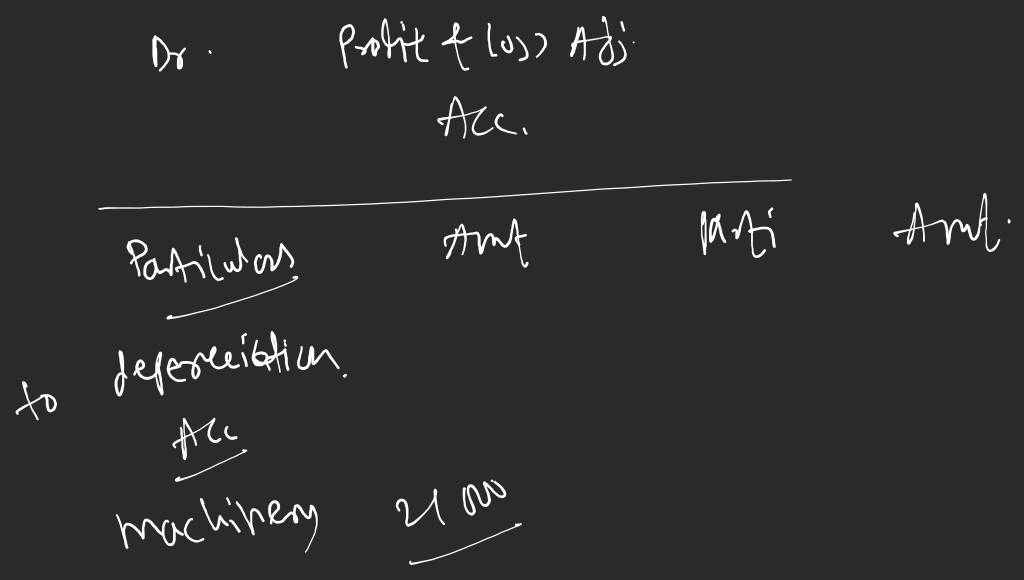 Dr. Profit & loss Adj.
Acc.
Particulars Amt Parti Amt.
to depreciation.
Acc
machinery 21000